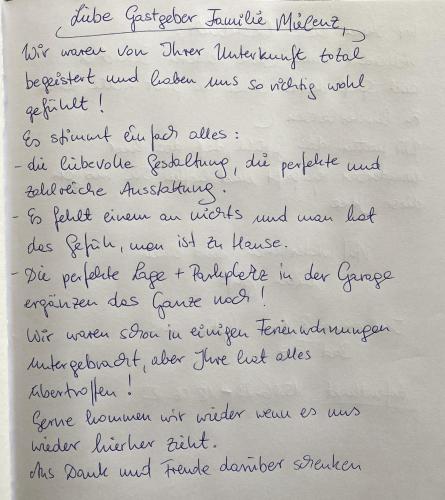 Liebe Gastgeber Familie Milenz,
Wir waren von Ihrer Unterkunft total
begeistert und haben uns so richtig wohl
gefühlt!
Es stimmt einfach alles:
- die liebevolle Gestaltung, die perfekte und
zahlreiche Ausstattung.
- Es fehlt einem an nichts und man hat
das Gefühl, man ist zu Hause.
- Die perfekte Lage + Parkplatz in der Garage
ergänzen das Ganze noch!
Wir waren schon in einigen Ferienwohnungen
untergebracht, aber Ihre hat alles
übertroffen!
Gerne kommen wir wieder wenn es uns
wieder hierher zieht.
Als Dank und Freude darüber schenken